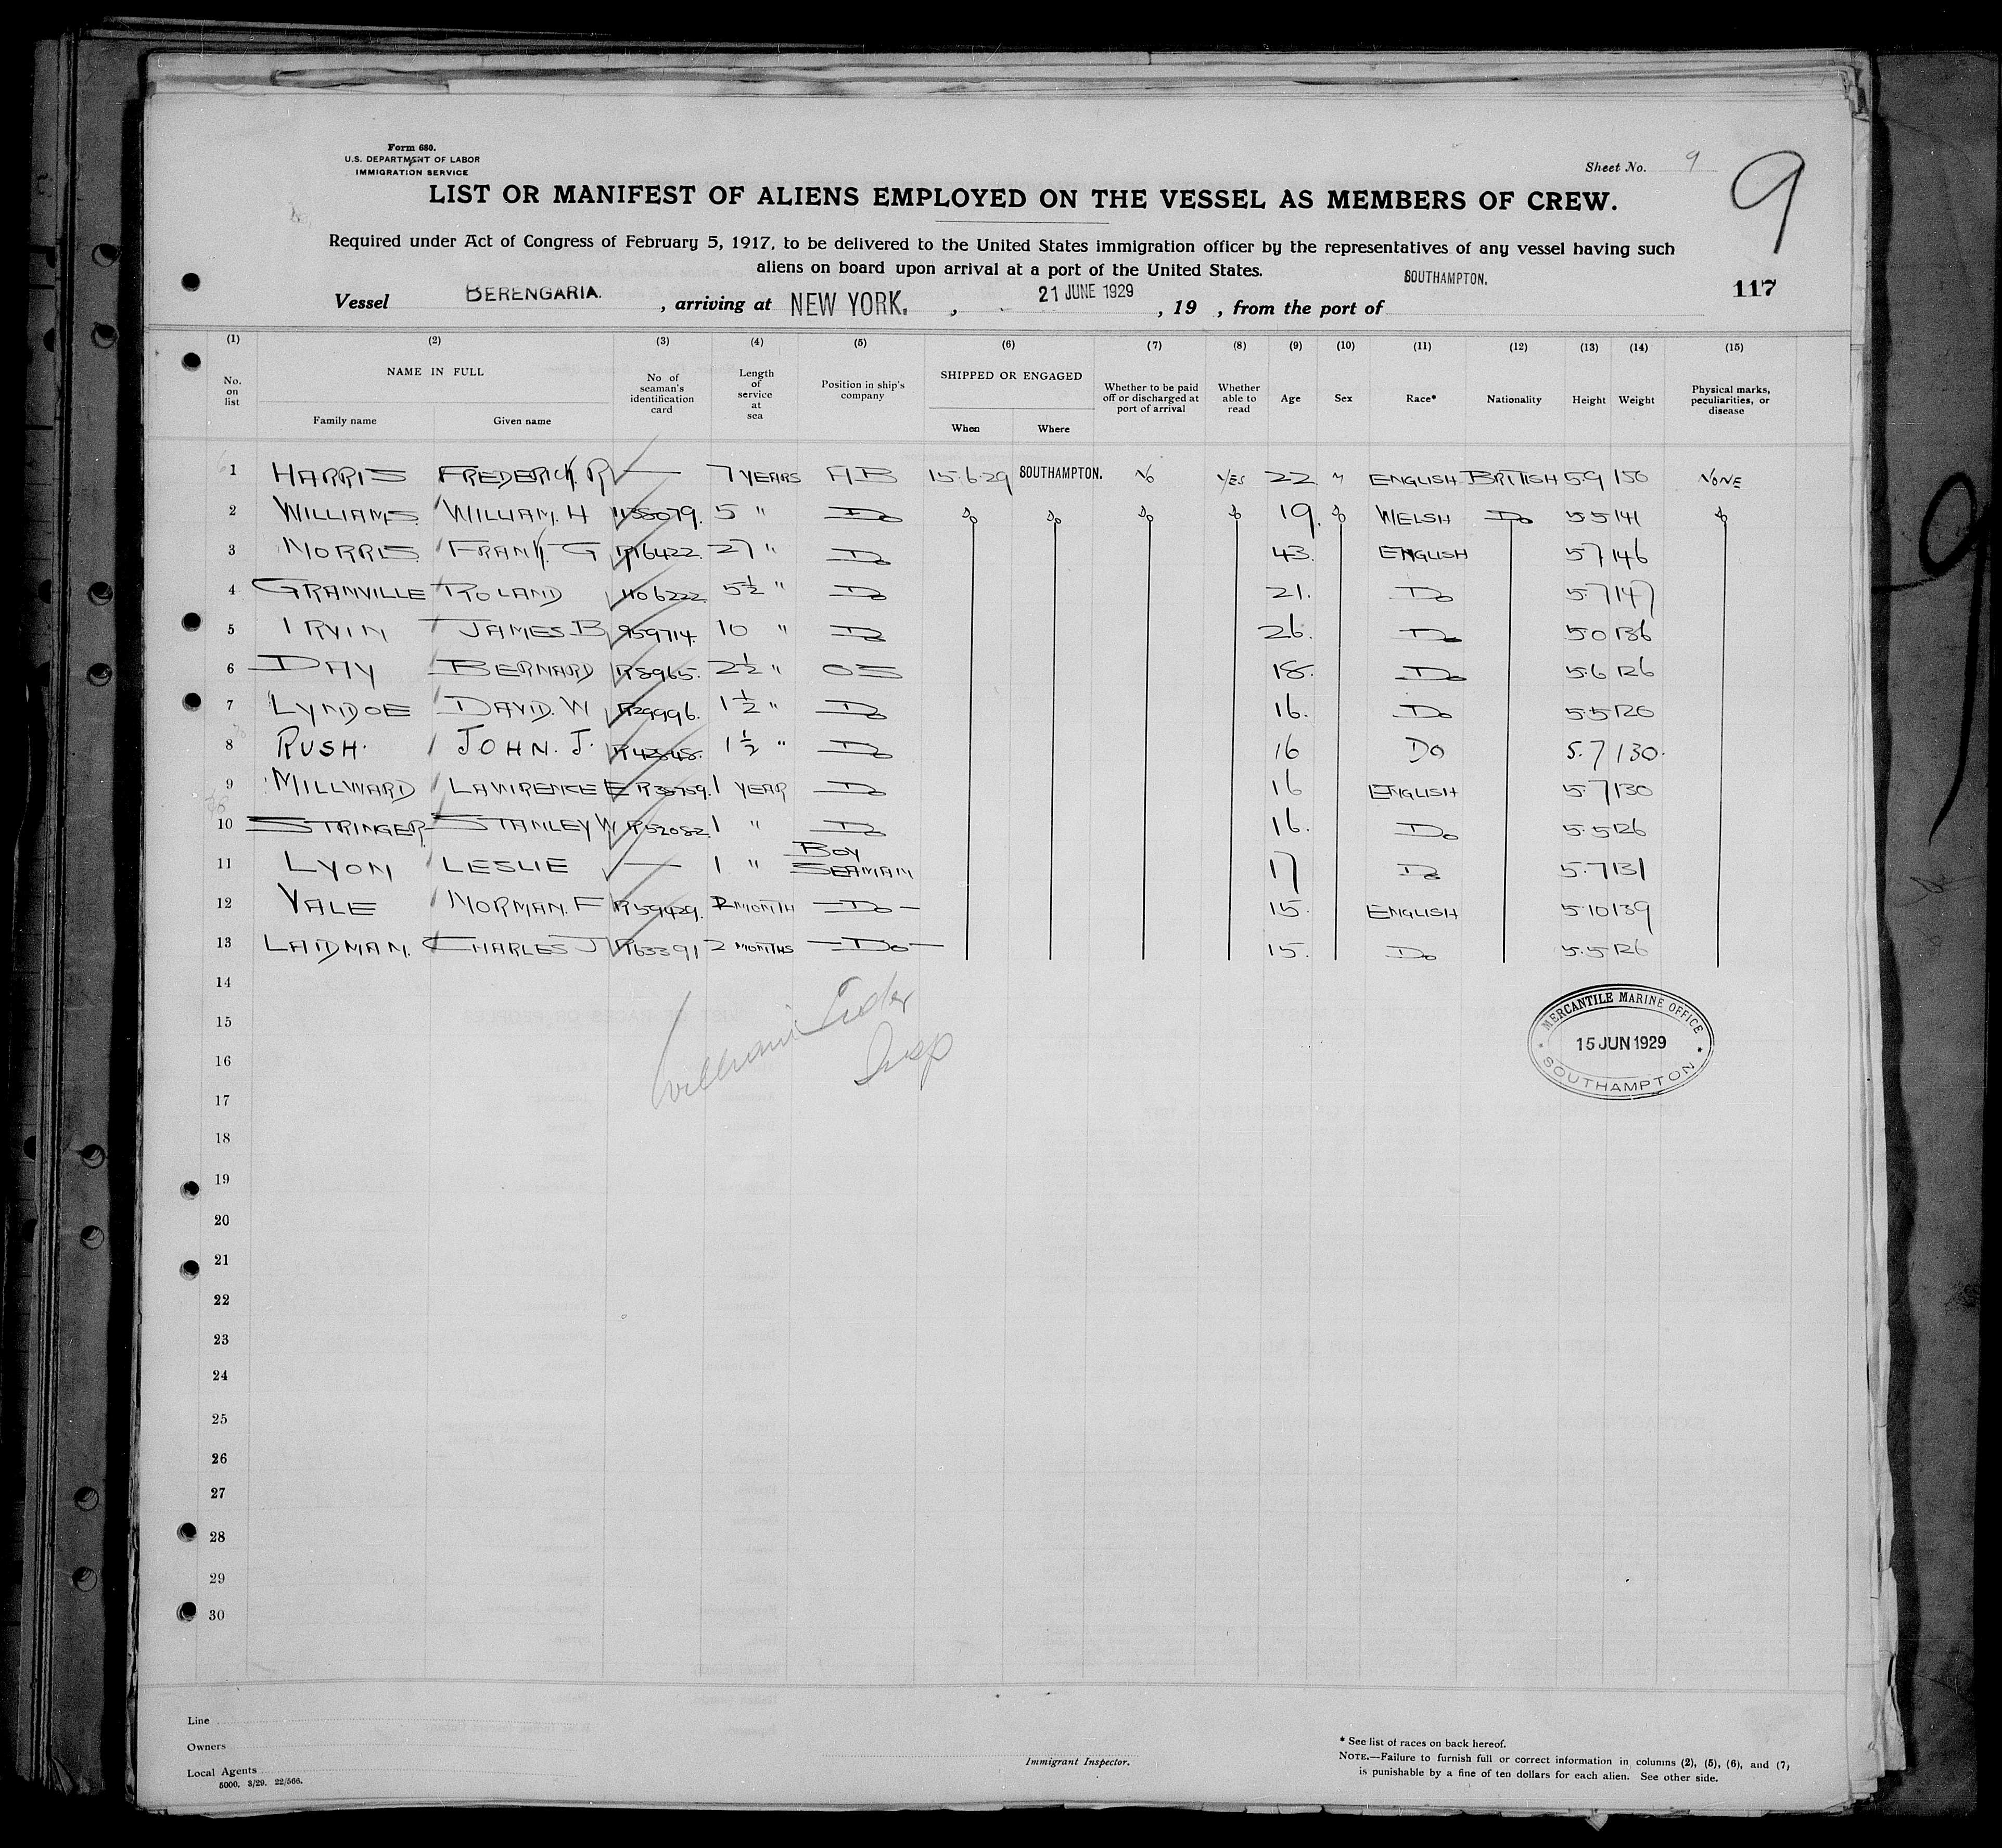 Form 680.
U.S. DEPARTMENT OF LABOR
IMMIGRATION SERVICE
Sheet No. 9
9
LIST OR MANIFEST OF ALIENS EMPLOYED ON THE VESSEL AS MEMBERS OF CREW.
Required under Act of Congress of February 5, 1917, to be delivered to the United States immigration officer by the representatives of any vessel having such
aliens on board upon arrival at a port of the United States.
Vessel BERENGARIA. , arriving at NEW YORK. , 21 JUNE 1929 , 19 , from the port of SOUTHAMPTON.
117
(1) (2) (3) (4) (5) (6) (7) (8) (9) (10) (11) (12) (13) (14) (15)
No. on list NAME IN FULL Family name Given name No of seaman's identification card Length of service at sea Position in ship's company SHIPPED OR ENGAGED When Where Whether to be paid off or discharged at port of arrival Whether able to read Age Sex Race* Nationality Height Weight Physical marks, peculiarities, or disease
1 HARRIS FREDERICK. R — 7 YEARS AB 15.6.29 SOUTHAMPTON. No YES 22 M ENGLISH BRITISH 5.9 150 NONE
2 WILLIAMS WILLIAM. H 1135079. 5 " Do do do do do 19. do WELSH Do 5.5 141 do
3 MORRIS FRANK. G R16422. 27 " Do 43. ENGLISH 5.7 146
4 GRANVILLE ROLAND 1106222 5½ " Do 21. Do 5.7 147
5 IRVIN JAMES. B 959714. 10 " Do 26. Do 5.0 136
6 DAY BERNARD R8965. 2½ " OS 18. Do 5.6 126
7 LYNDOE DAVID. W R29996. 1½ " Do 16. Do 5.5 120
8 RUSH. JOHN. J. 1½ " Do 16 Do 5.7 130.
9 MILLWARD LAWRENCE E 1 YEAR Do 16 ENGLISH 5.7 130
10 STRINGER STANLEY W R52082 1 " Do 16. Do 5.5 126
11 LYON LESLIE — 1 " BOY SEAMAN 17 Do 5.7 131
12 VALE NORMAN. F R59429. 2 MONTH Do 15. ENGLISH 5.10 139
13 LAIDMAN. CHARLES J R63391 2 MONTHS Do 15. Do 5.5 126
14
15
16
17
18
19
20
21
22
23
24
25
26
27
28
29
30
William
Insp
MERCANTILE MARINE OFFICE
15 JUN 1929
SOUTHAMPTON
Line
Owners
Local Agents
5000. 3/29. 22/566.
Immigrant Inspector.
* See list of races on back hereof.
NOTE.—Failure to furnish full or correct information in columns (2), (5), (6), and (7)
is punishable by a fine of ten dollars for each alien. See other side.